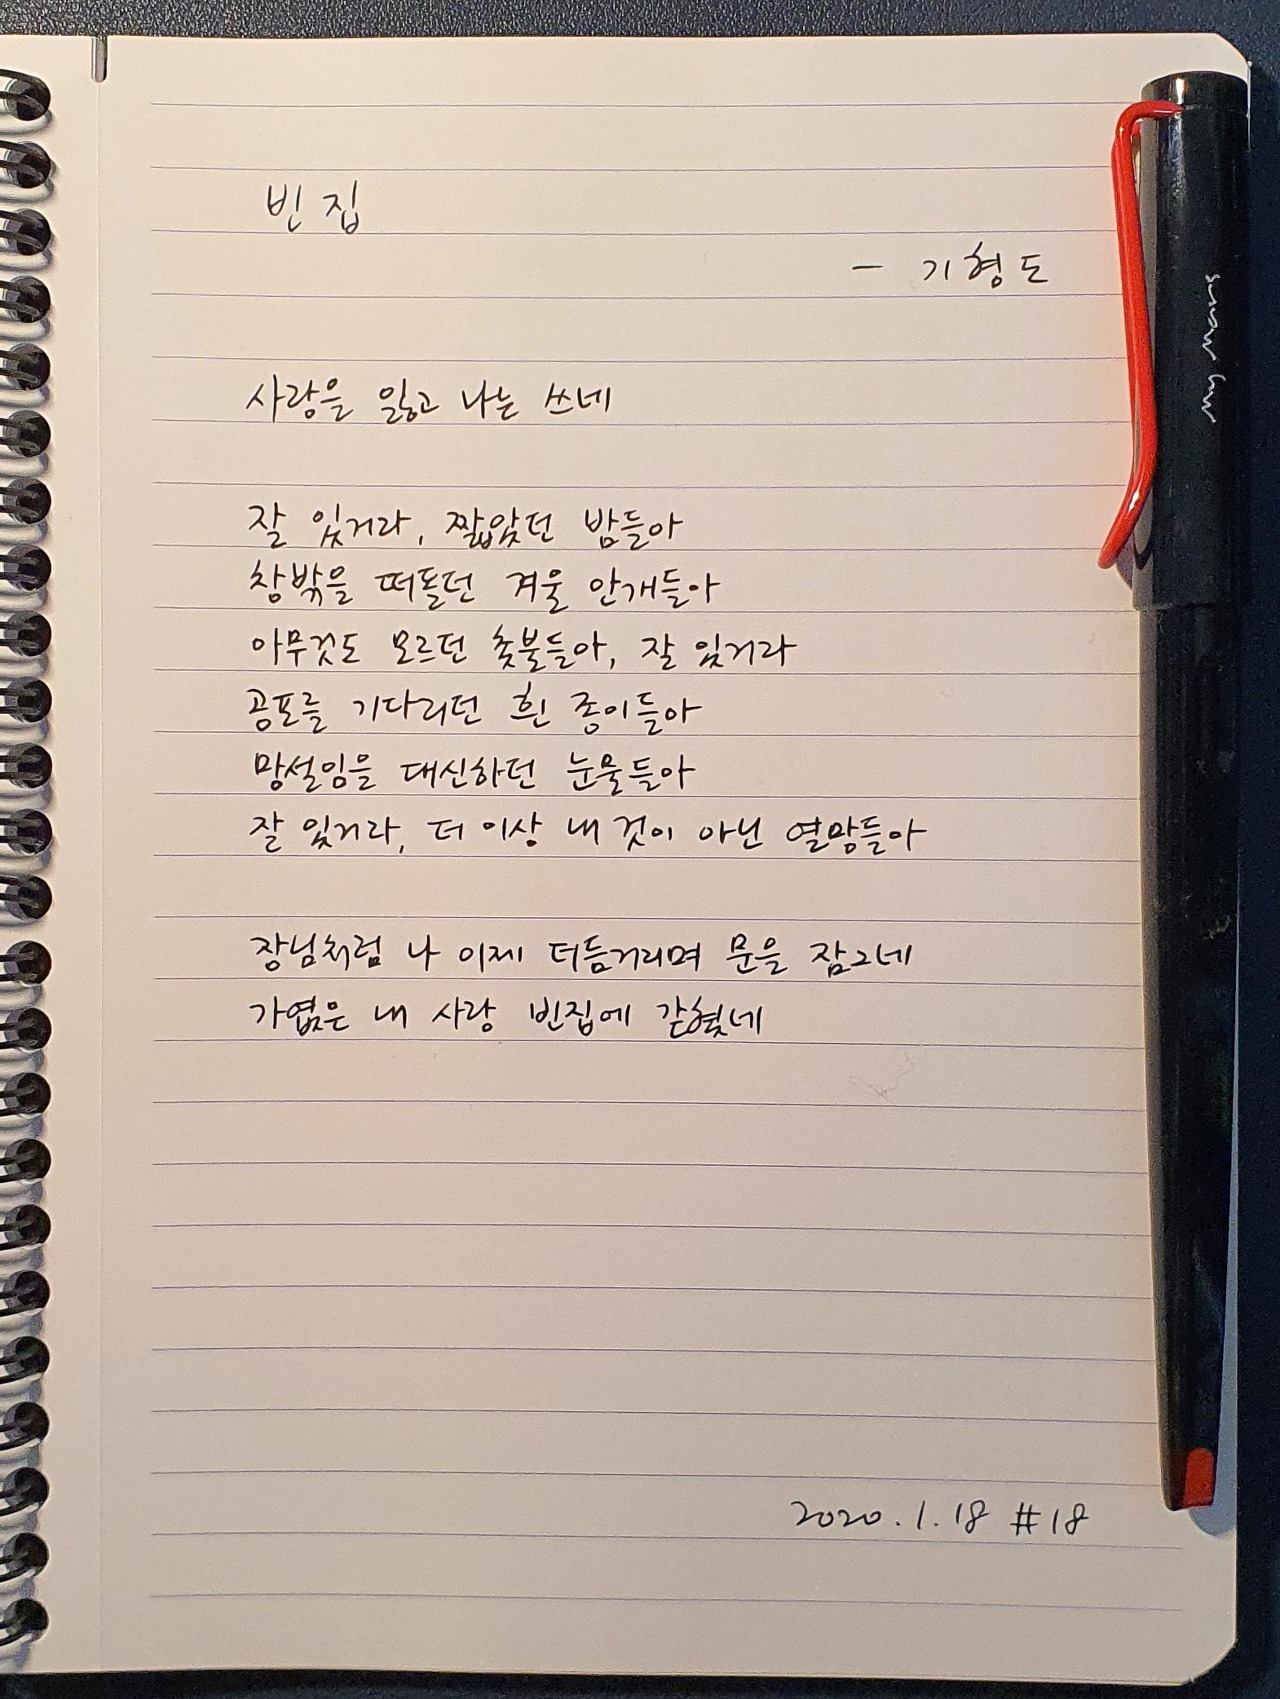 빈 집
- 기형도
사랑을 잃고 나는 쓰네
잘 있거라, 짧았던 밤들아
창밖을 떠돌던 겨울 안개들아
아무것도 모르던 촛불들아, 잘 있거라
공포를 기다리던 흰 종이들아
망설임을 대신하던 눈물들아
잘 있거라, 더 이상 내 것이 아닌 열망들아
장님처럼 나 이제 더듬거리며 문을 잠그네
가엾은 내 사랑 빈집에 갇혔네
2020.1.18 #18